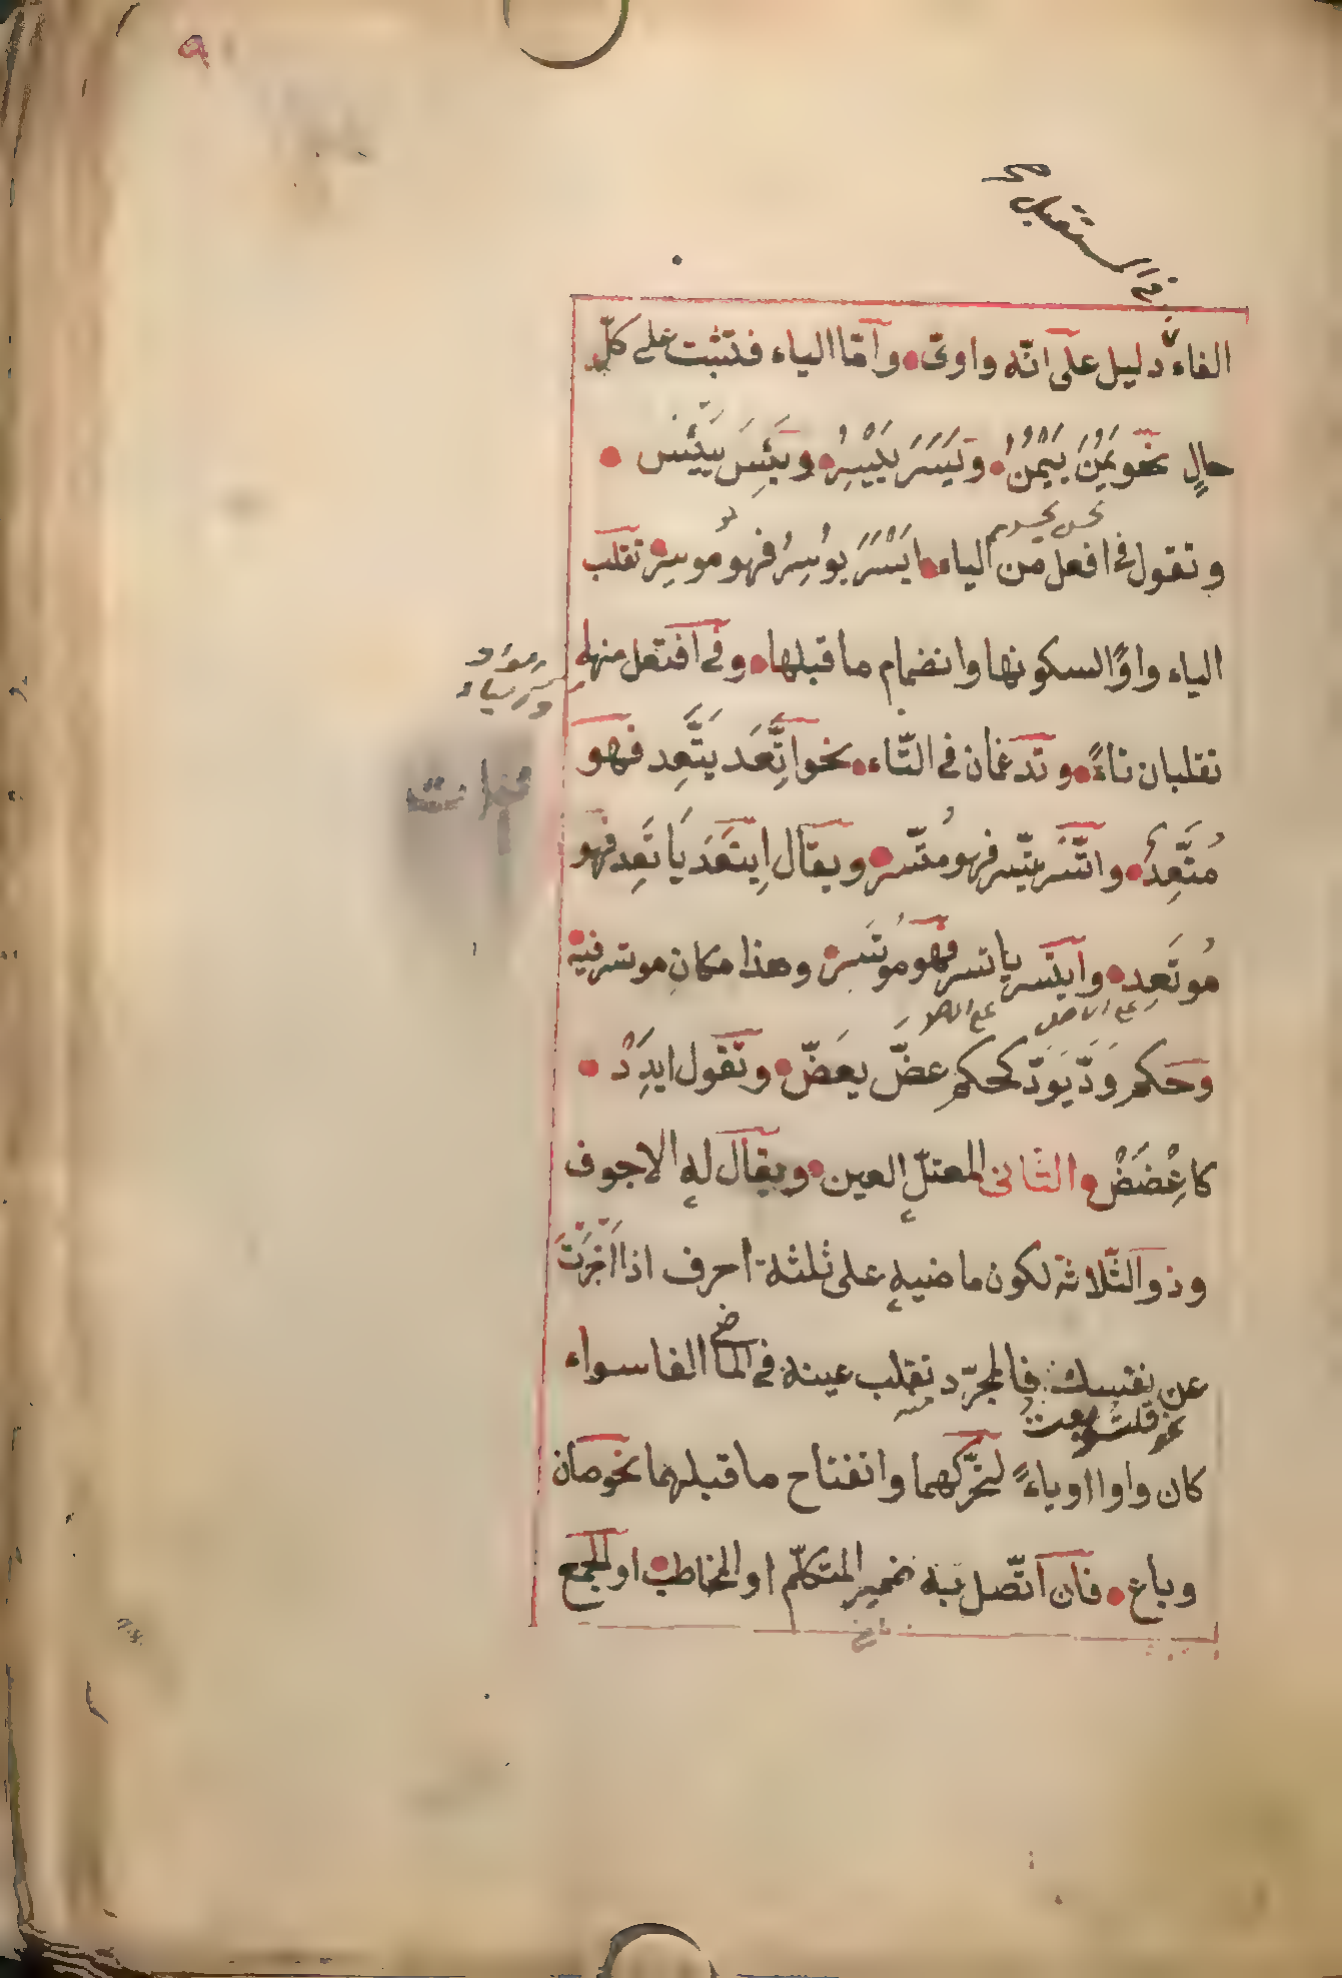 ٩
في المستقبل صح
الفاء دليل على انّه واوىّ وامّا الياء فتثبت على كلّ
حالٍ نحو يَمُنَ يَيْمُنُ وَيَسَرَ يَيْسِرُ وَيَئِسَ يَيْئَسُ
وتقول فى افعل من الياء ايْسَرَ يُوسِرُ فهو مُوسِرٌ تقلب
الياء واوًا لسكونها وانضمام ما قبلها وفى افتعل منها
تقلبان تاءً وتدغمان فى التّاء نحو اتَّعَدَ يَتَّعِد فهو
مُتَّعِدٌ واتَّسَرَ يتّسر فهو مُتّسر ويقال اِيتَعَدَ يَا تَعِد فهو
مُوتَعِد وايتسر ياتسر فهو مُوتَسر وهذا مكان موتسر فيه
على الاصل على الاصل
وَحَكم وَدَّ يَوَدّ كحكم عَضَّ يعَضّ وتقول ايدَدْ
كاعْضَضْ والثّانى المعتلّ العين ويقال له الاجوف
وذو الثّلاثة لكون ماضيه على ثلثة احرف اذا اخْبَرْتَ
عن نفسك فالمجرّد تقلب عينه فى الماضى الفا سواء
نحو قلتُ وبعتُ
كان واوا او ياءً لتحرّكهما وانفتاح ما قبلهما نحو صان
وباع فان اتّصل به ضمير المتكلّم او المخاطب او الجمع